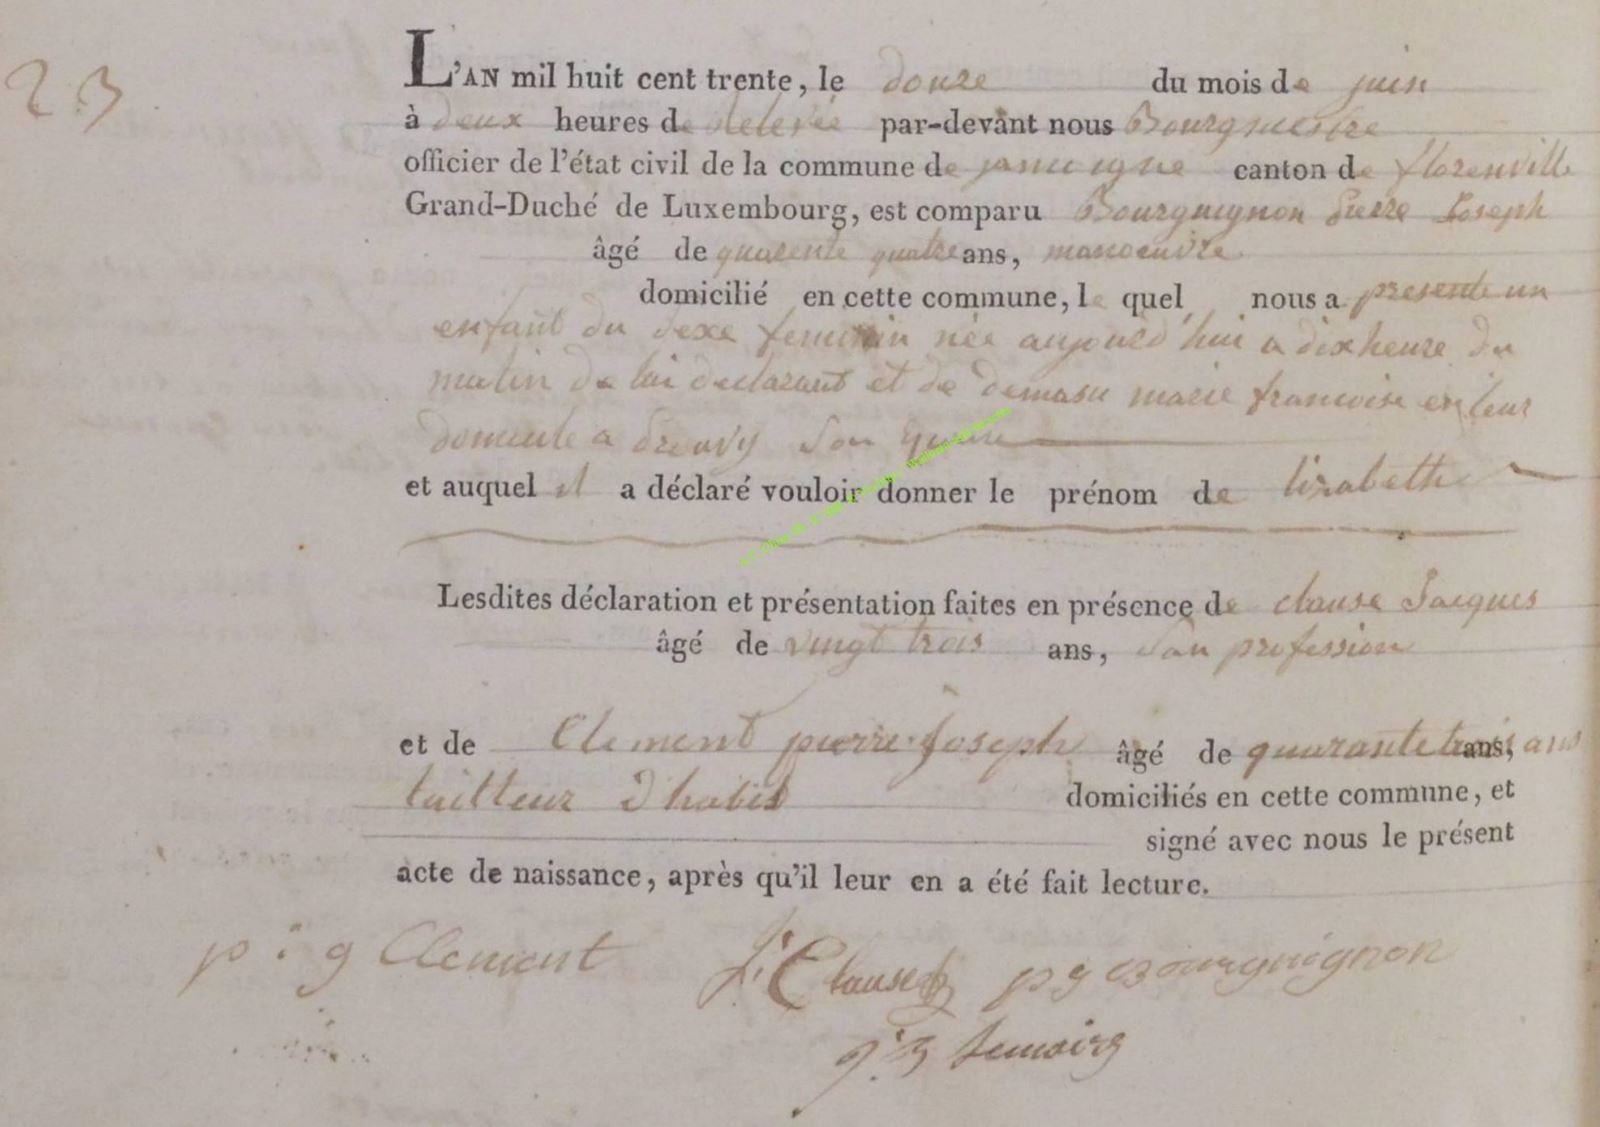 23
L'AN mil huit cent trente, le douze du mois de juin
à deux heures de relevée par-devant nous Bourgmestre
officier de l'état civil de la commune de jamoigne canton de florenville
Grand-Duché de Luxembourg, est comparu Bourguignon pierre Joseph
âgé de quarente quatre ans, manoeuvre
domicilié en cette commune, le quel nous a presenté un
enfant du sexe feminin née aujourd'hui a dix heure du
matin de lui declarant et de marie francoise en leur
domicile a prouvy son epouse
et auquel il a déclaré vouloir donner le prénom de lisabeth
Lesdites déclaration et présentation faites en présence de clause Jacques
âgé de vingt trois ans, san profession
et de Clement pierre joseph âgé de quarante trois ans, ans
tailleur d'habis domiciliés en cette commune, et
signé avec nous le présent
acte de naissance, après qu'il leur en a été fait lecture.
p : g Clement J. Clause p g Bourguignon